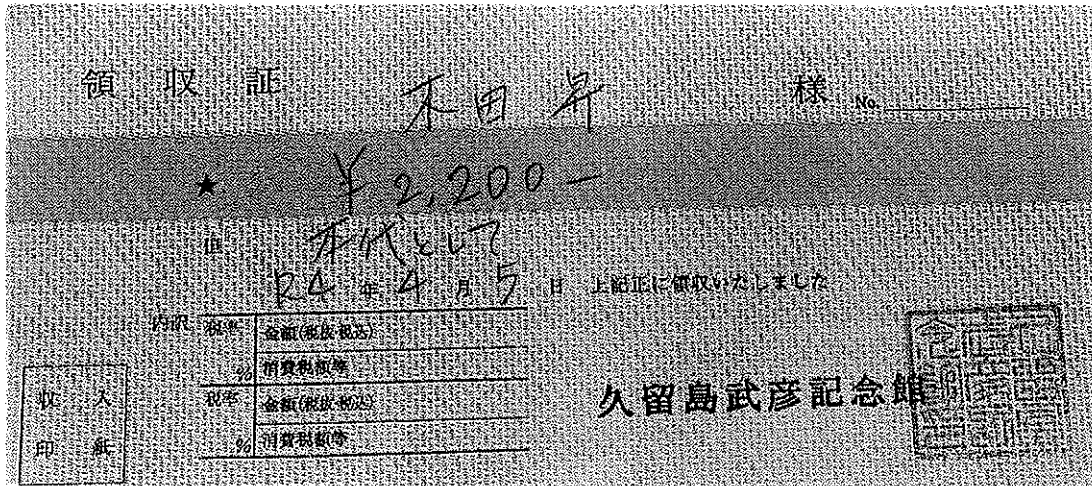 領収証 木田昇 様 No.
★ ¥2,200-
但 本代として
R4年4月5日 上記正に領収いたしました
内訳 税率 金額(税抜・税込)
% 消費税額等
税率 金額(税抜・税込)
% 消費税額等
収入
印紙
久留島武彦記念館